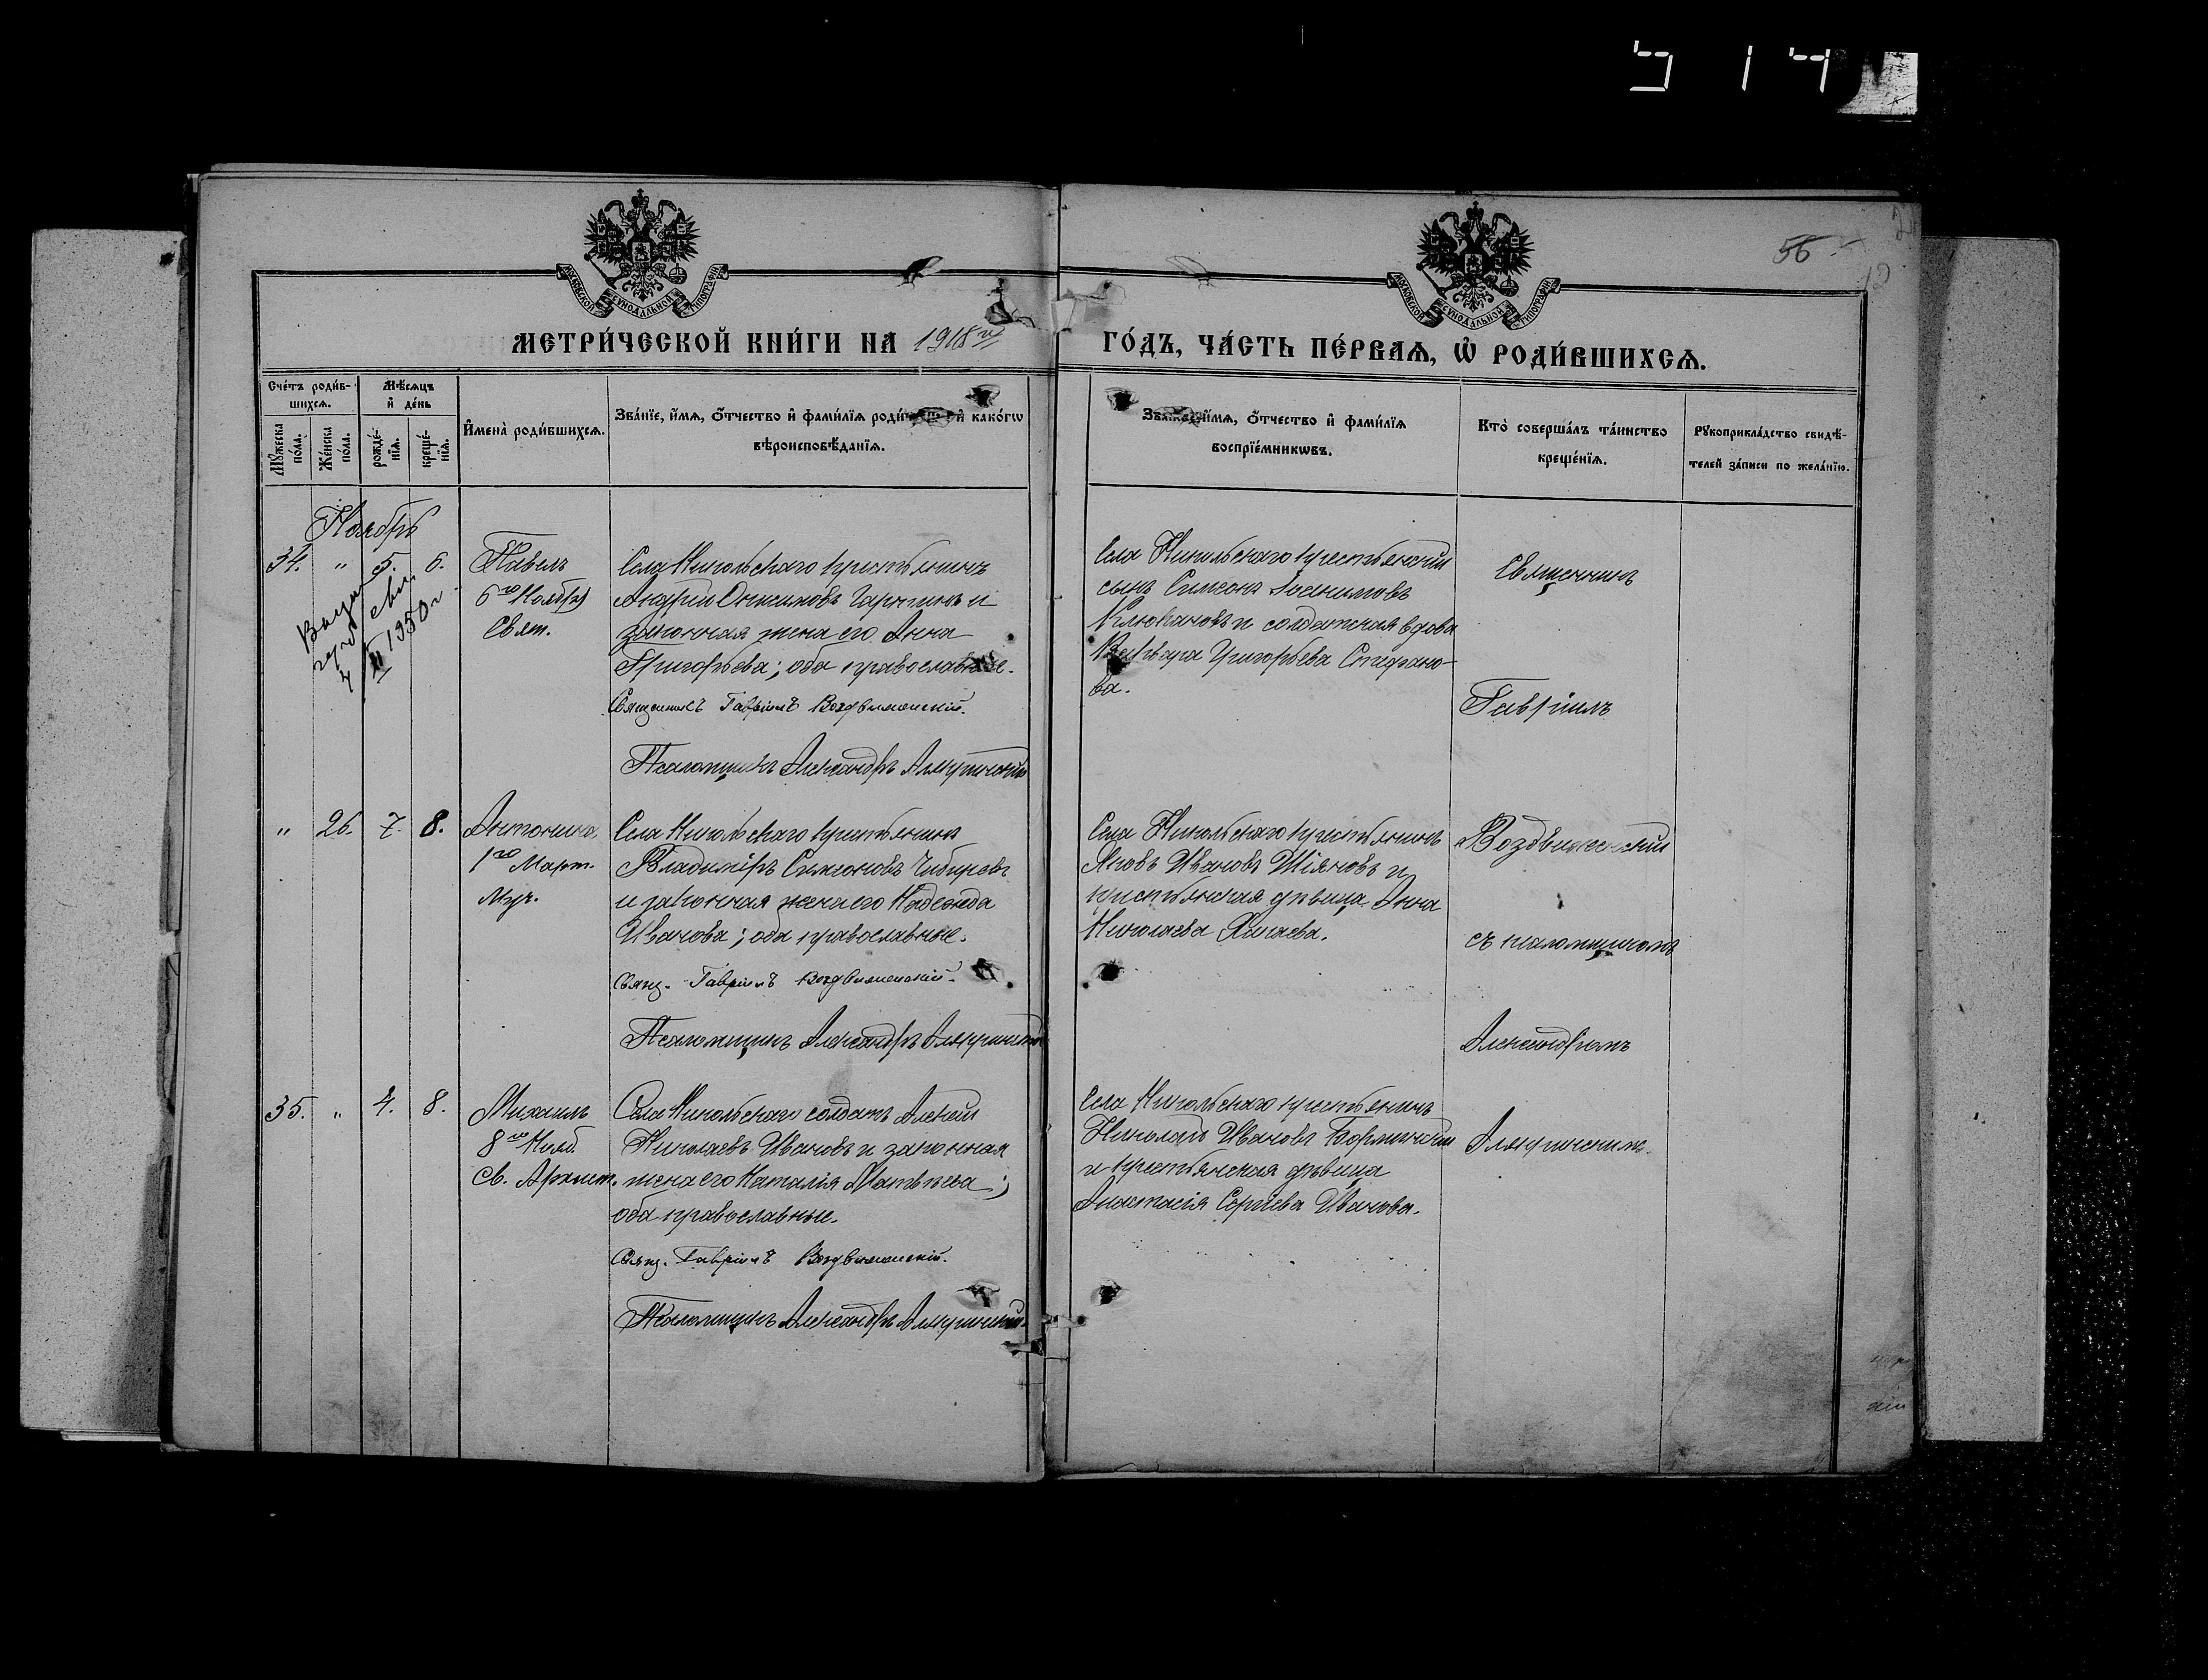 314
56
МОСКОВСКОЙ СѴНОДАЛЬНОЙ ТИПОГРАФІИ
МОСКОВСКОЙ СѴНОДАЛЬНОЙ ТИПОГРАФІИ
МЕТРИ́ЧЕСКОЙ КНИ́ГИ НА 1918 го
ГО́ДЪ, ЧА́СТЬ ПЕ́РВАѦ, Ѡ҆ РОДИ́ВШИХСѦ.
Сче́тъ роди́в-
шихсѧ.
Мꙋ́жеска по́ла.
Же́нска по́ла.
Мѣ́сѧцъ
и҆ де́нь
рожде́-
нїѧ.
креще́-
нїѧ.
И҆мена̀ роди́вшихсѧ.
Зва́нїе, и҆́мѧ, ѻ҆́тчество и҆ фами́лїѧ и҆ како́гѡ
вѣроисповѣ́данїѧ.
и҆́мѧ, ѻ҆́тчество и҆ фами́лїѧ
воспрїе́мникѡвъ.
Кто̀ соверша́лъ та́инство
креще́нїѧ.
Рꙋкоприкла́дство свидѣ́-
телей за́писи по жела́нїю.
Ноябрь
34. " 5. 6.
4/XI 1950 г
Павелъ
6го Ноября
Свят.
Села Никольскаго крестьянинъ
Андрей Онисимовъ и
законная жена его Анна
Григорьева; оба православные.
Священникъ Гавріилъ Воздвиженскій.
Псаломщикъ Александръ
Села Никольскаго крестьянскій
сынъ Симеонъ
и солдатская вдова
Григорьева
ва.
Священникъ
Гавріилъ
" 26. 7. 8.
Антонина
1го Март.
Муч.
Села Никольскаго крестьянинъ
Владиміръ Симеоновъ
и законная жена его Надежда
Иванова; оба православные.
Свящ. Гавріилъ Воздвиженскій.
Псаломщикъ Александръ
Села Никольскаго крестьянинъ
Яковъ Ивановъ и
крестьянская дѣвица Анна
Николаева
Воздвиженскій
съ псаломщикомъ
Александромъ
35. " 4. 8.
Михаилъ
8го Нояб.
Св. Архист.
Села Никольскаго солдатъ Алексѣй
Николаевъ Ивановъ и законная
жена его Наталія Матвѣева;
оба православные.
Свящ. Гавріилъ Воздвиженскій.
Псаломщикъ Александръ
Села Никольскаго крестьянинъ
Николай Ивановъ
и крестьянская дѣвица
Анастасія Сергіева Иванова.